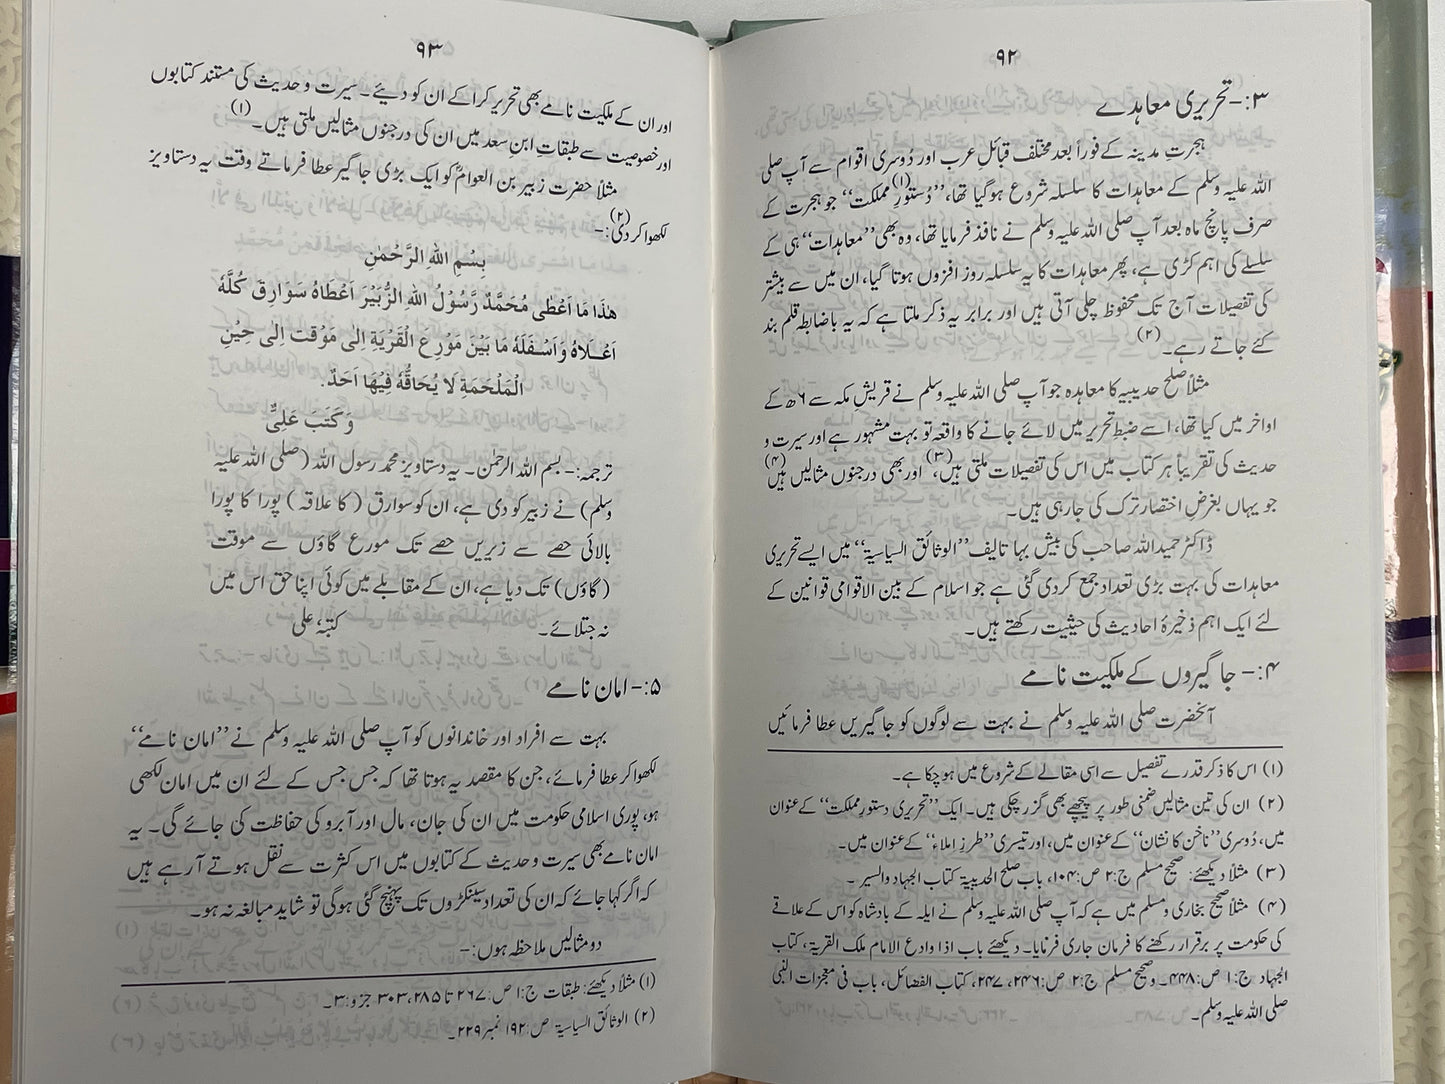 ۹۲
۳:- تحریری معاہدے
ہجرتِ مدینہ کے فوراً بعد مختلف قبائل عرب اور دُوسری اقوام سے آپ صلی
اللہ علیہ وسلم کے معاہدات کا سلسلہ شروع ہوگیا تھا،(۱) ’’دُستورِ مملکت‘‘ جو ہجرت کے
صرف پانچ ماہ بعد آپ صلی اللہ علیہ وسلم نے نافذ فرمایا تھا، وہ بھی ’’معاہدات‘‘ ہی کے
سلسلے کی اہم کڑی ہے، پھر معاہدات کا یہ سلسلہ روز افزوں ہوتا گیا، ان میں سے بیشتر
کی تفصیلات آج تک محفوظ چلی آتی ہیں اور برابر یہ ذکر ملتا ہے کہ یہ باضابطہ قلم بند
کئے جاتے رہے۔(۲)
مثلاً صلح حدیبیہ کا معاہدہ جو آپ صلی اللہ علیہ وسلم نے قریش مکہ سے ۶ھ کے
اواخر میں کیا تھا، اسے ضبطِ تحریر میں لائے جانے کا واقعہ تو بہت مشہور ہے اور سیرت و
حدیث کی تقریباً ہر کتاب میں اس کی تفصیلات ملتی ہیں،(۳) اور بھی درجنوں مثالیں ہیں(۴)
جو یہاں بغرضِ اختصار ترک کی جارہی ہیں۔
ڈاکٹر حمید اللہ صاحب کی بیش بہا تالیف ’’الوثائق السیاسیة‘‘ میں ایسے تحریری
معاہدات کی بہت بڑی تعداد جمع کردی گئی ہے جو اسلام کے بین الاقوامی قوانین کے
لئے ایک اہم ذخیرۂ احادیث کی حیثیت رکھتے ہیں۔
۴:- جاگیروں کے ملکیت نامے
آنحضرت صلی اللہ علیہ وسلم نے بہت سے لوگوں کو جاگیریں عطا فرمائیں
(۱) اس کا ذکر قدرے تفصیل سے اسی مقالے کے شروع میں ہوچکا ہے۔
(۲) ان کی تین مثالیں ضمنی طور پر پیچھے بھی گزر چکی ہیں۔ ایک ’’تحریری دستورِ مملکت‘‘ کے عنوان
میں، دُوسری ’’ناخن کا نشان‘‘ کے عنوان میں، اور تیسری ’’طرزِ اِملاء‘‘ کے عنوان میں۔
(۳) مثلاً دیکھئے: صحیح مسلم ج:۲ ص:۱۰۴، باب صلح الحدیبیة کتاب الجہاد والسیر۔
(۴) مثلاً صحیح بخاری و مسلم میں ہے کہ آپ صلی اللہ علیہ وسلم نے ایلہ کے بادشاہ کو اس کے علاقے
کی حکومت پر برقرار رکھنے کا فرمان جاری فرمایا۔ دیکھئے باب اذا وادع الامام ملک القریة، کتاب
الجہاد ج:۱ ص:۴۴۸۔ وصحیح مسلم ج:۲ ص:۲۴۶، ۲۴۷، کتاب الفضائل، باب فی معجزات النبی
صلی اللہ علیہ وسلم۔
۹۳
اور ان کے ملکیت نامے بھی تحریر کراکے ان کو دیئے۔ سیرت و حدیث کی مستند کتابوں
اور خصوصیت سے طبقاتِ ابنِ سعد میں ان کی درجنوں مثالیں ملتی ہیں۔(۱)
مثلاً حضرت زبیر بن العوامؓ کو ایک بڑی جاگیر عطا فرماتے وقت یہ دستاویز
لکھوا کر دی:-(۲)
بِسْمِ اللهِ الرَّحْمٰنِ
هٰذَا مَا اَعْطٰى مُحَمَّدٌ رَّسُوْلُ اللهِ الزُّبَيْرَ اَعْطَاهُ سَوَارِقَ كُلَّهٗ
اَعْلَاهُ وَاَسْفَلَهٗ مَا بَيْنَ مَوْرِعِ الْقَرْيَةِ اِلٰى مَوْقِتِ اِلٰى حِيْنِ
الْمَلْحَمَةِ لَا يُحَاقُّهٗ فِيْهَا اَحَدٌ.
وَكَتَبَ عَلِىٌّ
ترجمہ:- بسم اللہ الرحمٰن۔ یہ دستاویز محمد رسول اللہ (صلی اللہ علیہ
وسلم) نے زبیر کو دی ہے، ان کو سوارق (کا علاقہ) پورا کا پورا
بالائی حصے سے زیریں حصے تک مورع گاؤں سے موقت
(گاؤں) تک دیا ہے، ان کے مقابلے میں کوئی اپنا حق اس میں
نہ جتلائے۔ کتبہٗ علی
۵:- امان نامے
بہت سے افراد اور خاندانوں کو آپ صلی اللہ علیہ وسلم نے ’’امان نامے‘‘
لکھوا کر عطا فرمائے، جن کا مقصد یہ ہوتا تھا کہ جس جس کے لئے ان میں امان لکھی
ہو، پوری اسلامی حکومت میں ان کی جان، مال اور آبرو کی حفاظت کی جائے گی۔ یہ
امان نامے بھی سیرت و حدیث کے کتابوں میں اس کثرت سے نقل ہوتے آرہے ہیں
کہ اگر کہا جائے کہ ان کی تعداد سینکڑوں تک پہنچ گئی ہوگی تو شاید مبالغہ نہ ہو۔
دو مثالیں ملاحظہ ہوں:-
(۱) مثلاً دیکھئے: طبقات ج:۱ ص:۲۶۷ تا ۲۸۵، ۳۰۳ جزو:۳۔
(۲) الوثائق السیاسیة ص:۱۹۲ نمبر ۲۲۹۔